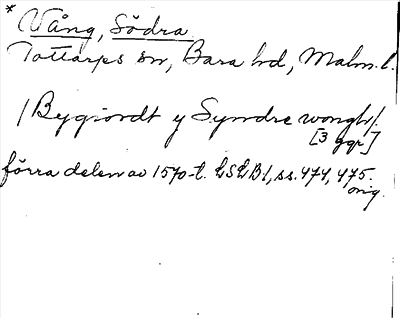 * Vång, Södra
Tottarps sn, Bara hd, Malm. l.
/Bygiordt y Syndre wongh/.
[3 ggr]
förra delen av 1570-t. LSLB1, ss. 474, 475.
orig.